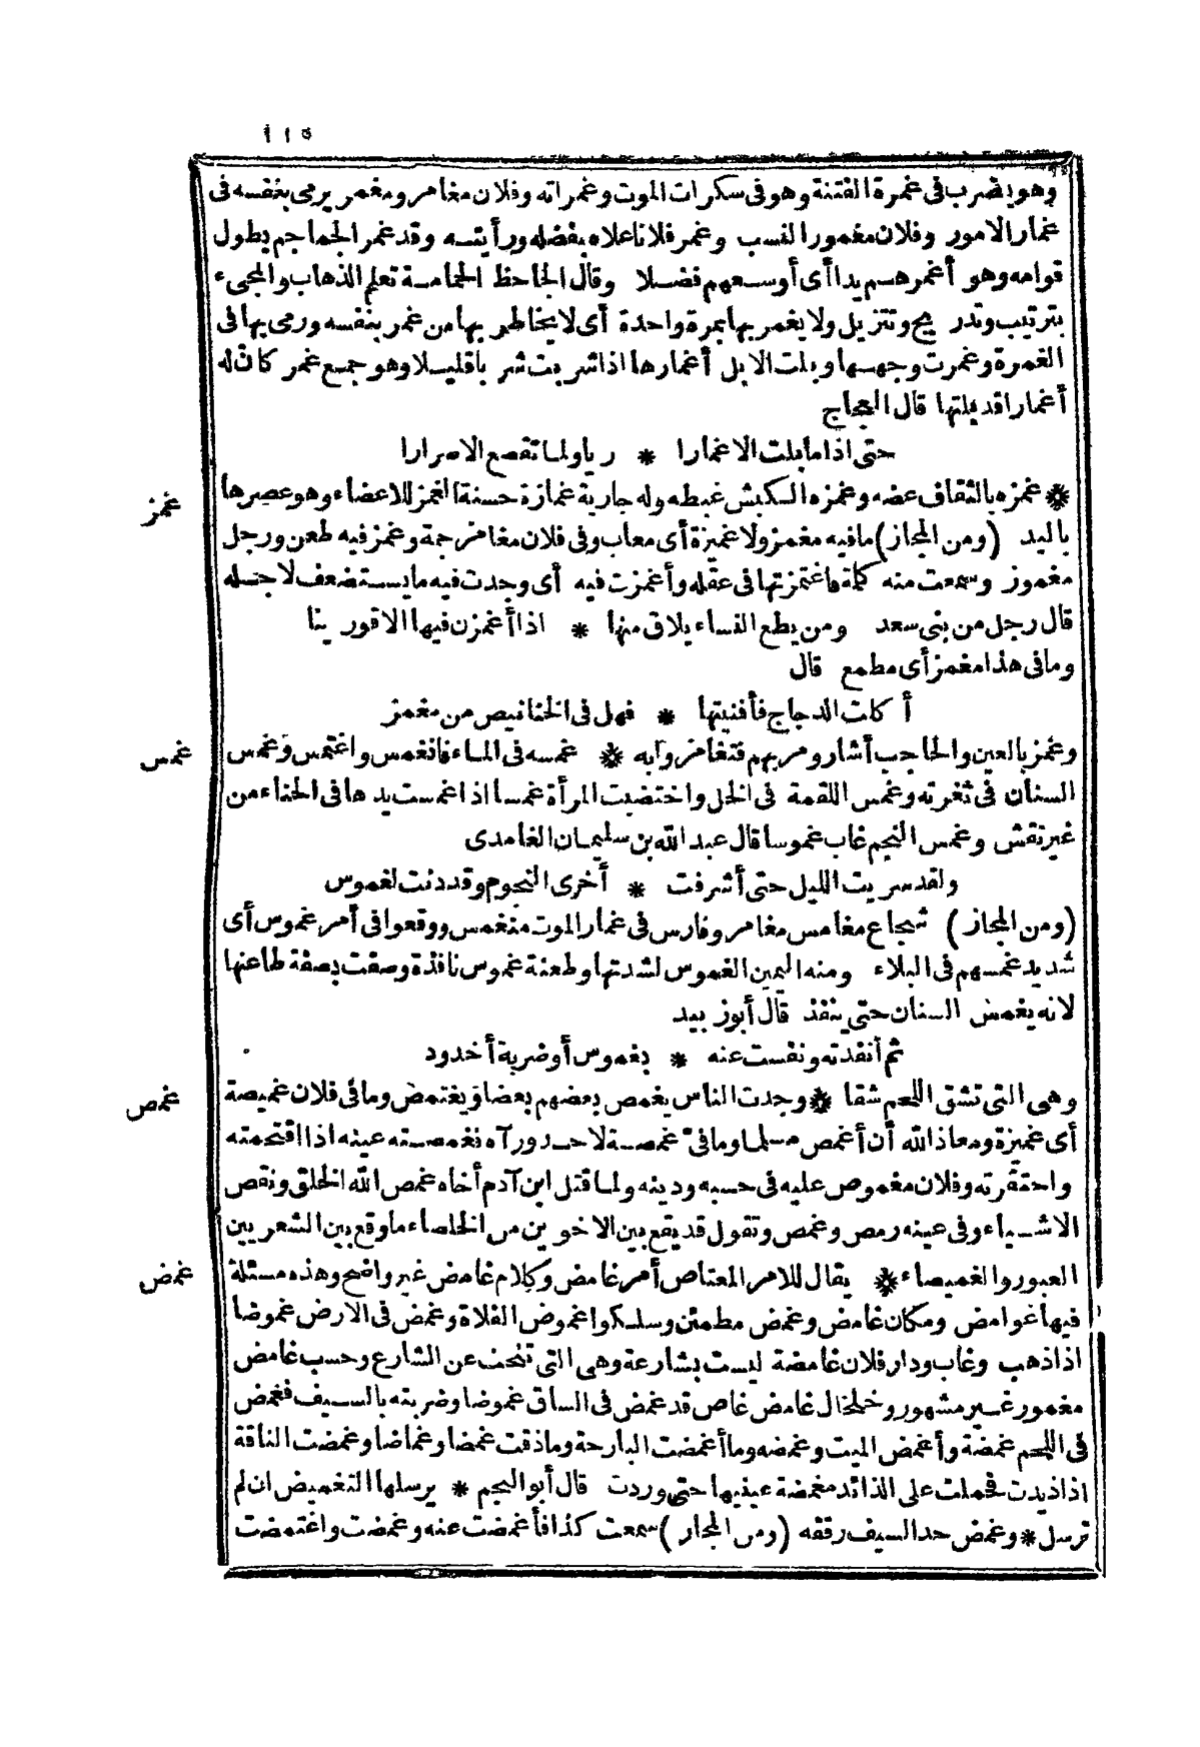 ١١٥
وهو يضرب فى غمرة الفتنة وهو فى سكرات الموت وغمراته وفلان مغامر ومغمر يرمى بنفسه فى
غمار الامور وفلان مغمور النسب وغمر فلانا علاه بفضله ورأيته وقد غمر الجماجم بطول
قوامه وهو أغمرهم يدا أى أوسعهم فضلا وقال الجاحظ الحمامة تعلم الذهاب والمجىء
بترتيب وتدريج وتنزيل ولا يغمر بها بمرة واحدة أى لا يخاطر بها من غمر بنفسه ورمى بها فى
الغمرة وغمرت وجهها وبلت الابل أغمارها اذا شربت شربا قليلا وهو جمع غمر كان له
أغمارا قد بلتها قال العجاج
حتى اذا ما بلت الاغمارا * ريا ولما تقصع الاصرارا
غمز
* غمزه بالثقاف عضه وغمزه الكبش غبطه وله جارية غمازة حسنة الغمز للاعضاء وهو عصرها
باليد (ومن المجاز) ما فيه مغمز ولا غميزة أى معاب وفى فلان مغامز جمة وغمز فيه طعن ورجل
مغموز وسمعت منه كلمة فاغتمزتها فى عقله وأغمزت فيه أى وجدت فيه ما يستضعف لاجله
قال رجل من بنى سعد ومن يطع النساء يلاق منها * اذا أغمزن فيها الاقورينا
وما فى هذا مغمز أى مطمع قال
أكات الدجاج فأفنيتها * فهل فى الخنانيص من مغمز
غمس
وغمز بالعين والحاجب أشار ومر بهم فتغامزوا به * غمسه فى الماء فانغمس واغتمس وغمس
السنان فى ثغرته وغمس اللقمة فى الخل واختضبت المرأة غمسا اذا غمست يدها فى الحناء من
غير نقش وغمس النجم غاب غموسا قال عبد الله بن سليمان الغامدى
ولقد سريت الليل حتى أشرفت * أخرى النجوم وقد دنت لغموس
(ومن المجاز) شجاع مغامس مغامر وفارس فى غمار الموت منغمس ووقعوا فى أمر غموس أى
شديد غمسهم فى البلاء ومنه اليمين الغموس لشدتها وطعنة غموس نافذة وصفت بصفة طاعنها
لانه يغمس السنان حتى ينفذ قال أبو زبيد
ثم أنفذته ونفست عنه * بغموس أو ضربة أخدود
غمص
وهى التى تشق اللحم شقا * وجدت الناس يغمص بعضهم بعضا ويغتمص وما فى فلان غميصة
أى غميزة ومعاذ الله أن أغمص مسلما وما فىّ غمصة لاحد ورآه فغمصته عينه اذا اقتحمته
واحتقرته وفلان مغموص عليه فى حسبه ودينه ولما قتل ابن آدم أخاه غمص الله الخلق ونقص
الاشياء وفى عينه رمص وغمص وتقول قد يقع بين الاخوين من الخلصاء ما وقع بين الشعريين
غمض
العبور والغميصاء * يقال للامر المعتاص أمر غامض وكلام غامض غير واضح وهذه مسئلة
فيها غوامض ومكان غامض وغمض مطمئن وسلكوا غموض الفلاة وغمض فى الارض غموضا
اذا ذهب وغاب ودار فلان غامضة ليست بشارعة وهى التى تنحت عن الشارع وحسب غامض
مغمور غير مشهور وخلخال غامض غاص قد غمض فى الساق غموضا وضربته بالسيف فغمض
فى اللحم غمضة وأغمض الميت وغمضه وما أغمضت البارحة وما ذقت غمضا وغماضا وغمضت الناقة
اذا ذيدت فحملت على الذائد مغمضة عينيها حتى وردت قال أبو النجم * يرسلها التغميض ان لم
ترسل * وغمض حد السيف رققه (ومن المجاز) سمعت كذا فأغمضت عنه وغمضت واغتمضت